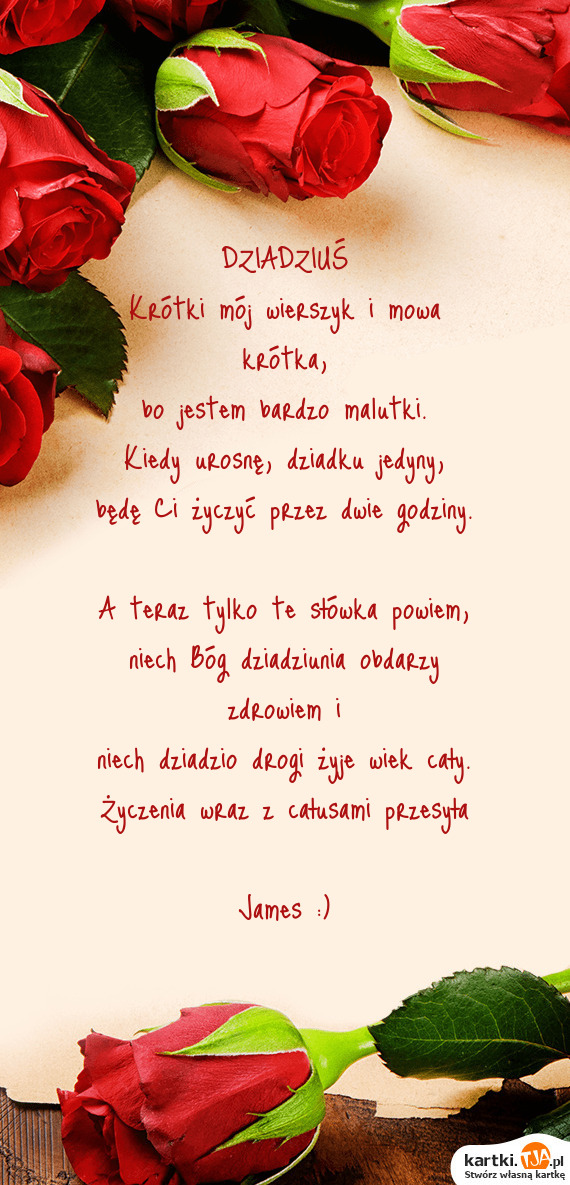 DZIADZIUŚ
Krótki mój wierszyk i mowa
krótka,
bo jestem bardzo malutki.
Kiedy urosnę, dziadku jedyny,
będę Ci życzyć przez dwie godziny.
A teraz tylko te słówka powiem,
niech Bóg dziadziunia obdarzy
zdrowiem i
niech dziadzio drogi żyje wiek cały.
Życzenia wraz z całusami przesyła
James :)
kartki.TJA.pl
Stwórz własną kartkę